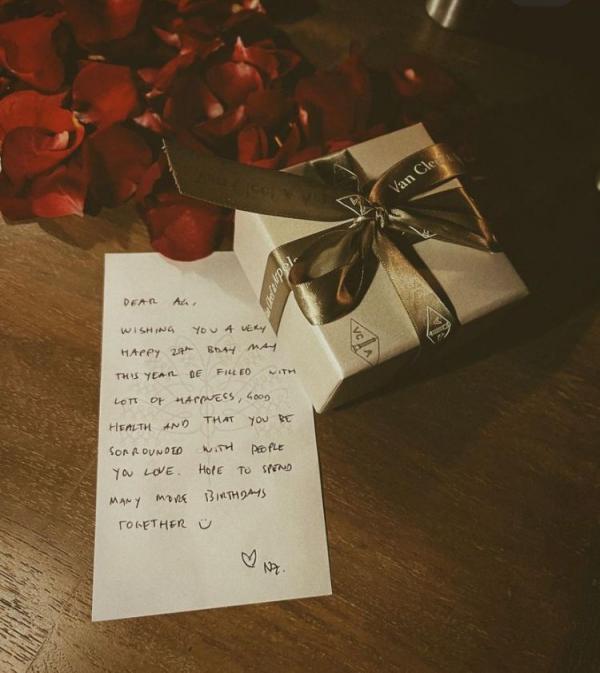 Van Cle
VCA
DEAR AG,
WISHING YOU A VERY
HAPPY BDAY MAY
THIS YEAR BE FILLED WITH
LOTS OF HAPPINESS, GOOD
HEALTH AND THAT YOU BE
SORROUNDED WITH PEOPLE
YOU LOVE. HOPE TO SPEND
MANY MORE BIRTHDAYS
TOGETHER